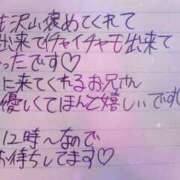 も沢山褒めてくれて
出来てイチャイチャも出来て
ったです♡
に来てくれるお兄さん
優しくてほんと嬉しいです♡
12時〜なので
お待ちしてます♡